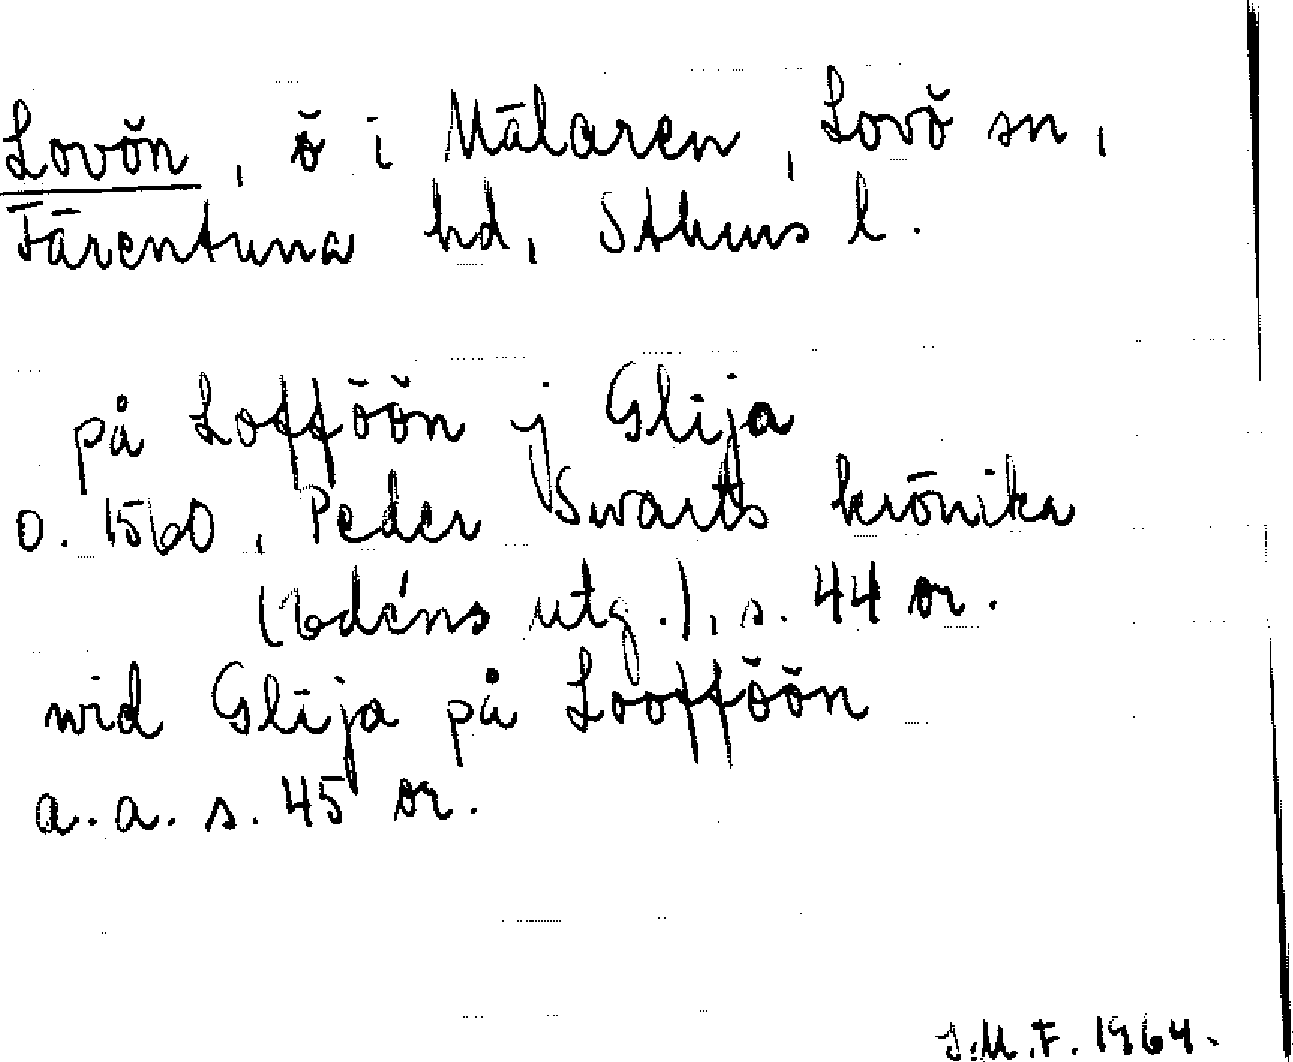 Lovön, ö i Mälaren, Lovö sn,
Färentuna hd, Sthms l.
på Lofföön j Glija
o. 1560, Peder Swarts krönika
(Edéns utg.), s. 44 or.
wid Glija på Loofföön
a. a. s. 45 or.
J.M.F. 1964.